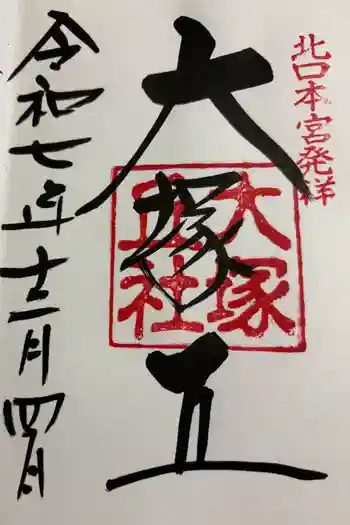 北口本宮発祥
大塚丘
大塚
丘社
令和七年十二月四日